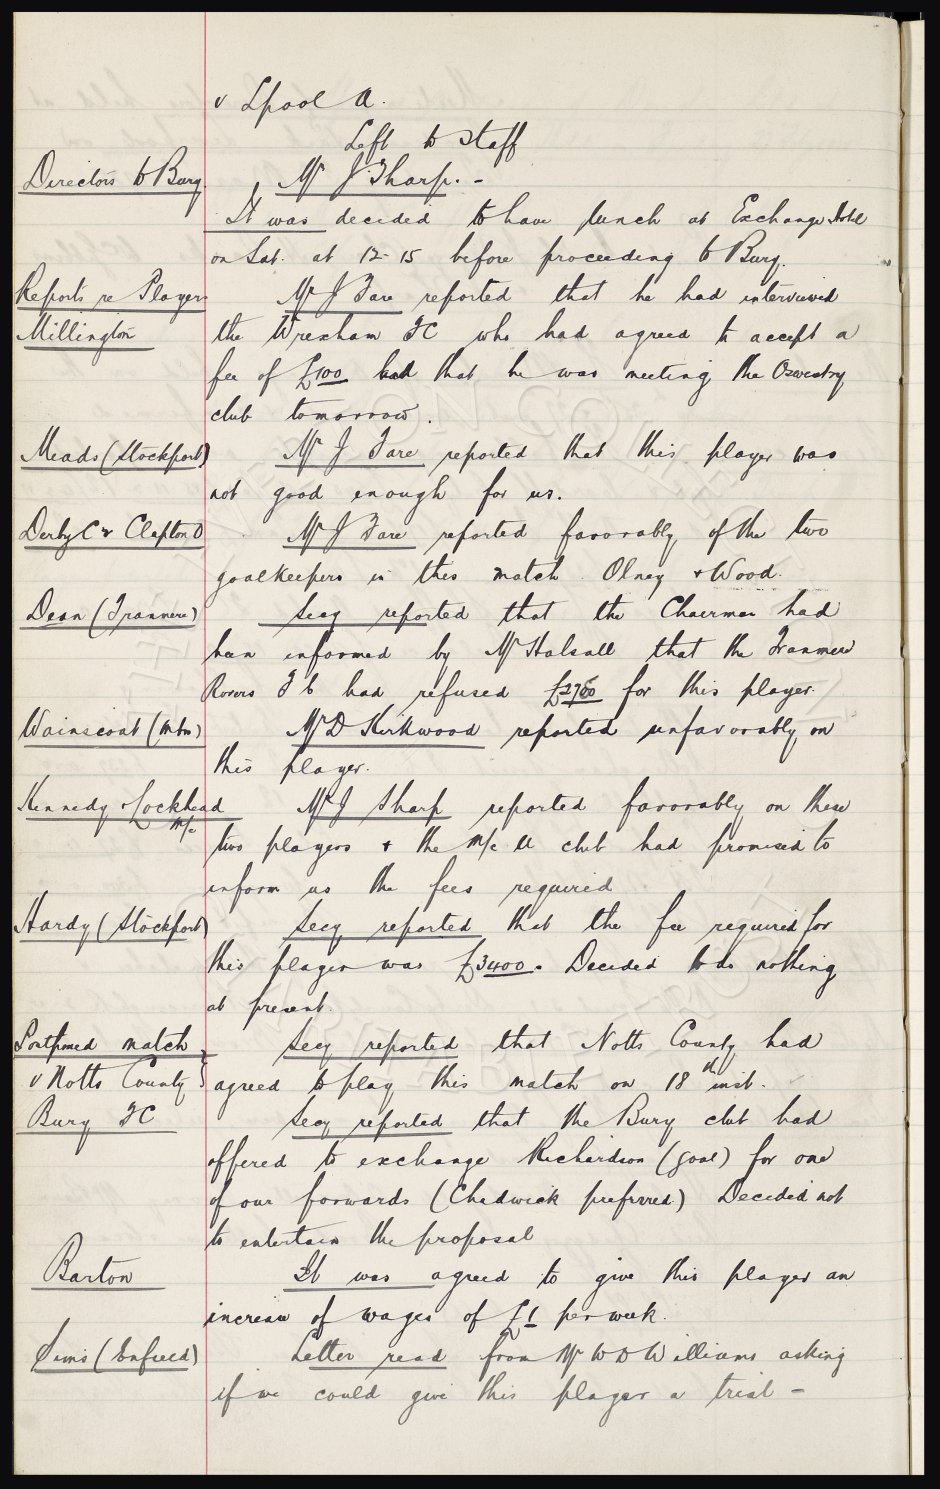 v Lpool A.
Left to Staff
Directors to Bury
Mr J Sharp. -
It was decided to have lunch at Exchange Hotel
on Sat. at 12-15 before proceeding to Bury.
Reports re Players
Mr J Fare reported that he had interviewed
Millington
the Wrexham FC who had agreed to accept a
fee of £100 that he was meeting the Oswestry
club tomorrow.
Meads (Stockport)
Mr J Fare reported that this player was
not good enough for us.
Derby C v Clapton O
Mr J Fare reported favorably of the two
goalkeepers in this match. Olney & Wood.
Dean (Tranmere)
Secy reported that the Chairman had
been informed by Mr Halsall that the Tranmere
Rovers FC had refused £2700 for this player.
Wainscoat (Mbro)
Mr D Kirkwood reported unfavorably on
this player.
Kennedy & Lockhead
M/c
Mr J Sharp reported favorably on these
two players & the M/c U club had promised to
inform us the fees required
Hardy (Stockport)
Secy reported that the fee required for
this player was £3400. Decided to do nothing
at present.
Postponed match
v Notts County
Secy reported that Notts County had
agreed to play this match on 18th inst.
Bury FC
Secy reported that the Bury club had
offered to exchange Richardson (goal) for one
of our forwards (Chadwick preferred) Decided not
to entertain the proposal
Barton
It was agreed to give this player an
increase of wages of £1 per week.
Sims (Enfield)
Letter read from Mr W D Williams asking
if we could give this player a trial -